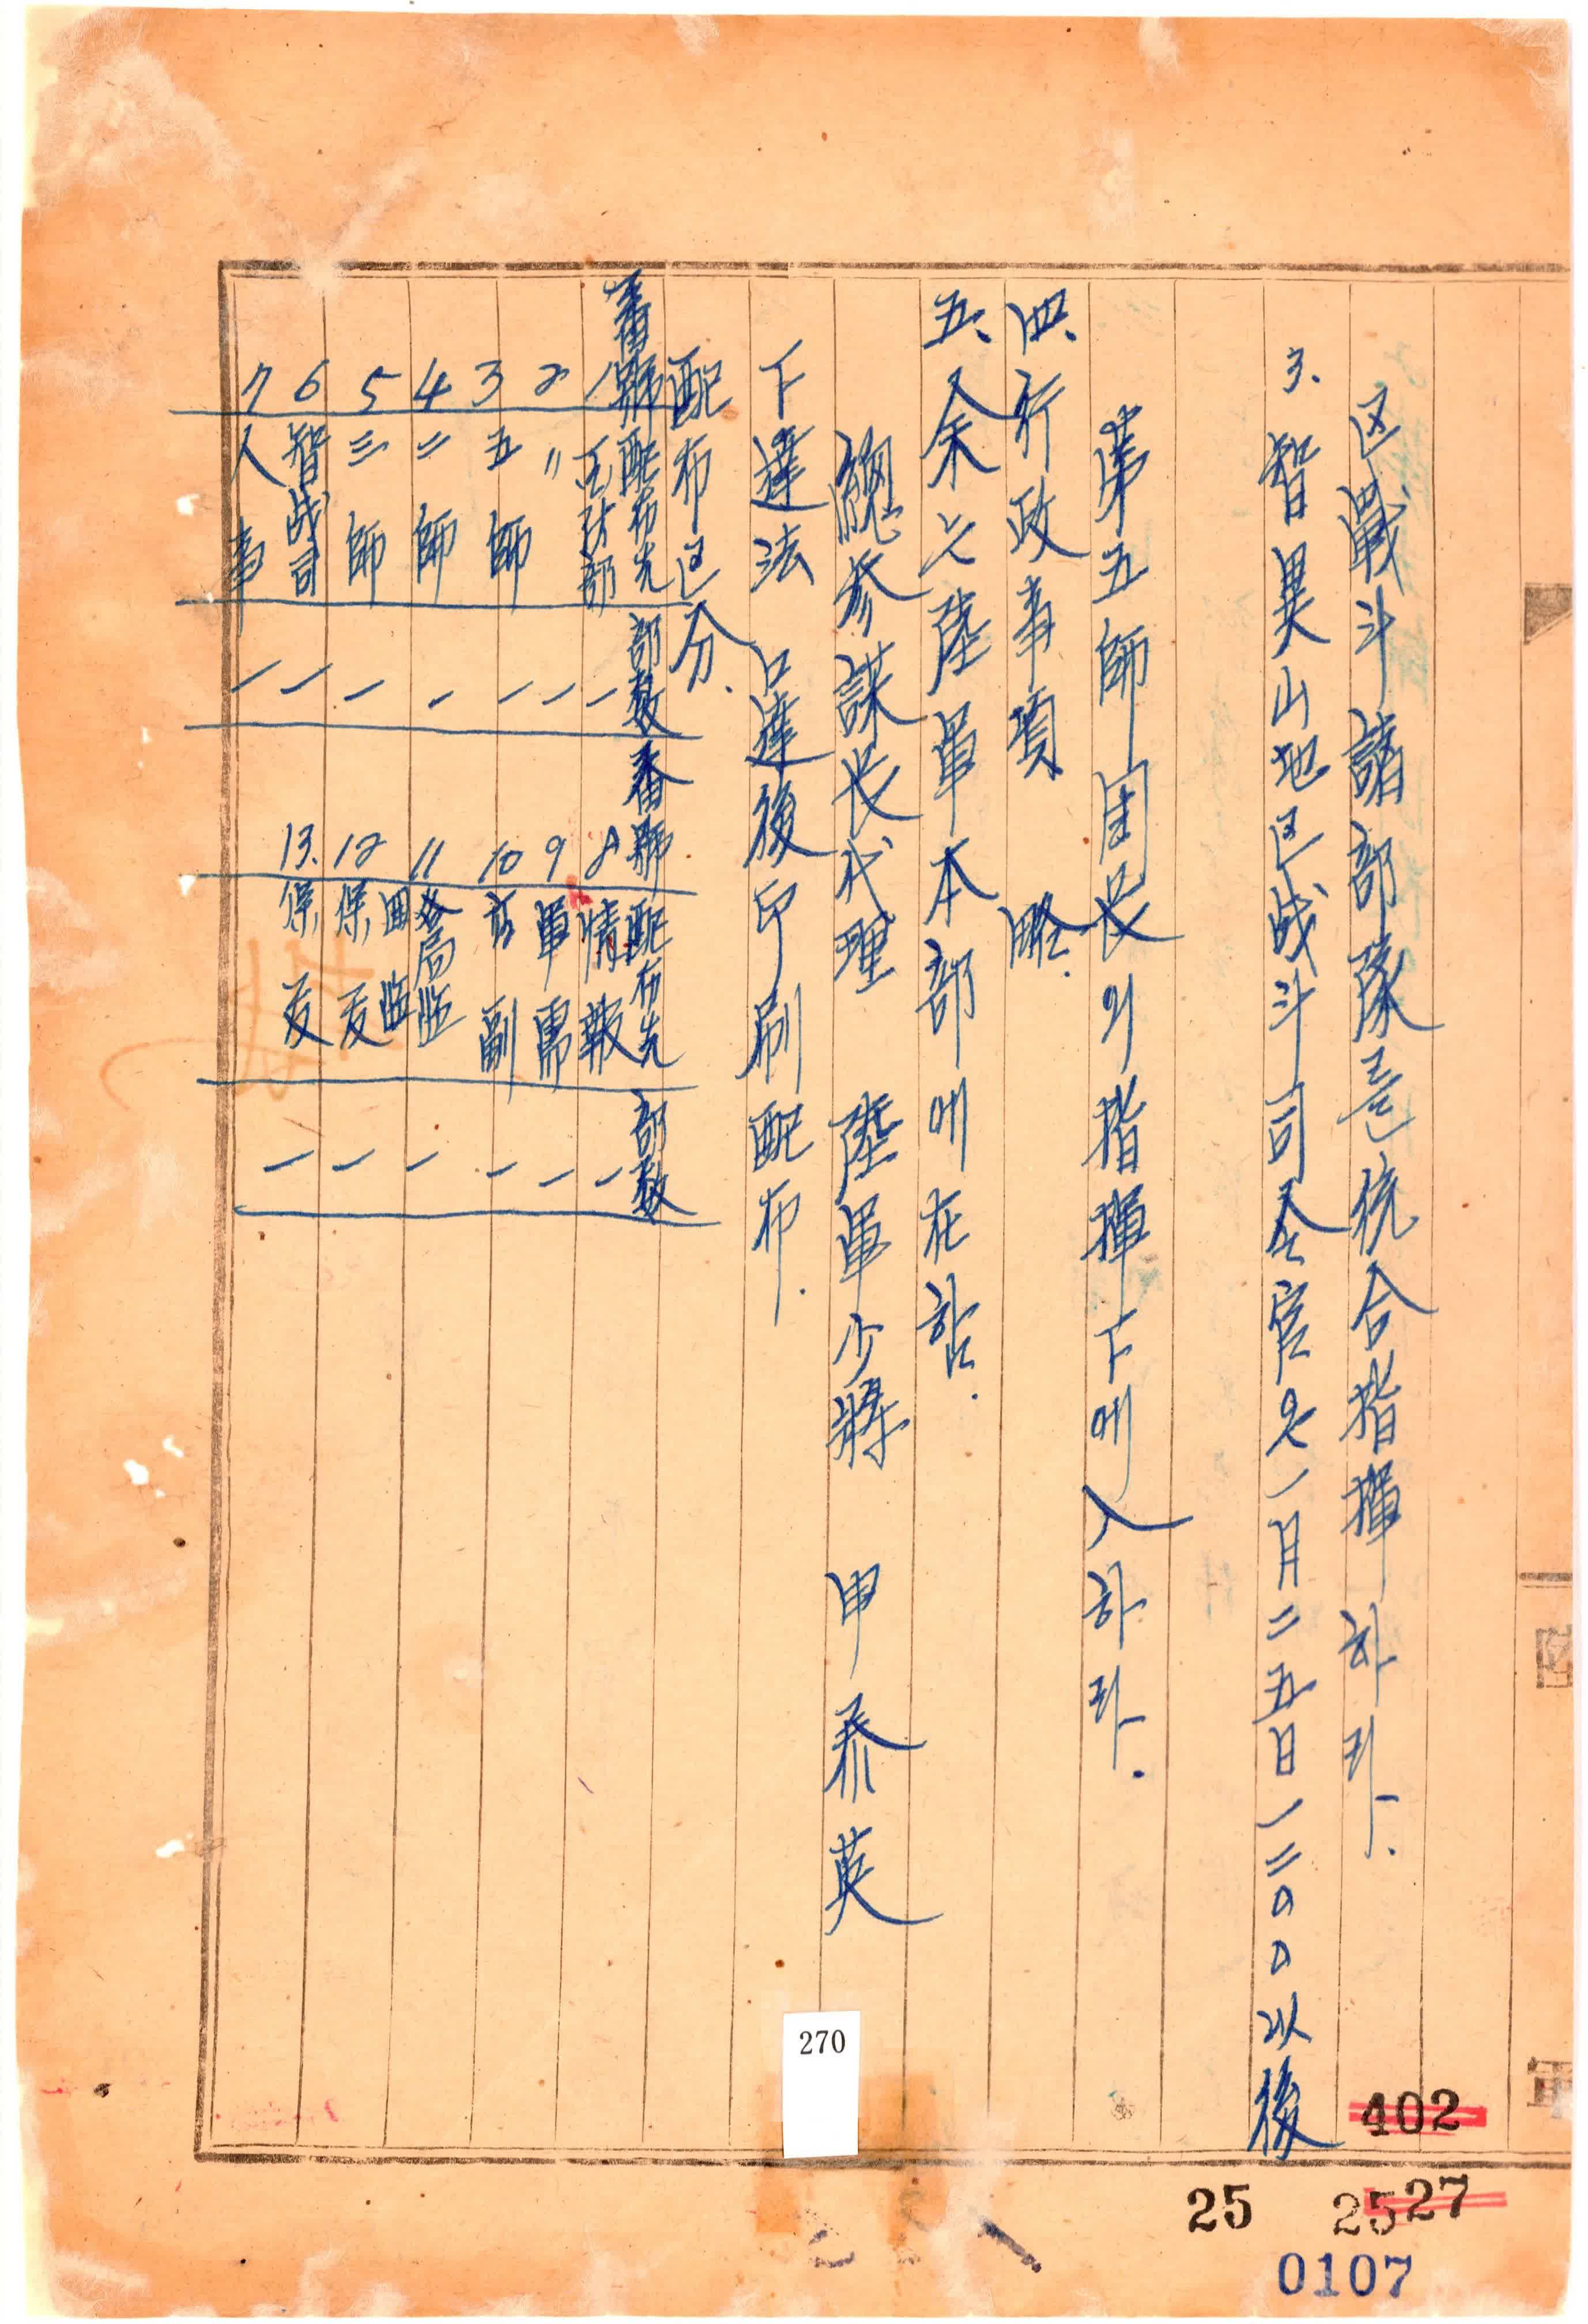 区戰斗諸部隊를統合指揮하라.
3. 智異山地区战斗司令官은一月二五日一二〇〇以後
第五師团长의指揮下에入하라.
四、行政事項 略.
五、余는陸軍本部에在함.
總参謀长代理 陸軍少將 申泰英
下達法 口達後印刷配布.
配布区分.
番號 配布先 部数 番號 配布先 部数
1 一 8 情報 一
2 〃 一 9 軍需 一
3 五師 一 10 副 一
4 二師 一 11 一
5 三師 一 12 保 一
6 智战司 一 13. 保 一
7 人事 一
270
402
25 2527
0107